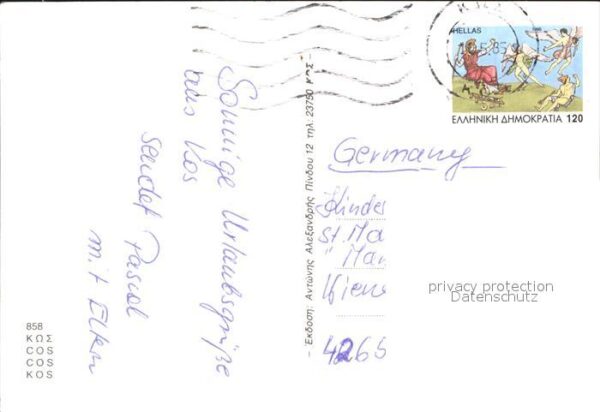 Sonnige Urlaubsgrüße
aus Kos
sendet Pascal
mit Eltern
858
ΚΩΣ
COS
COS
KOS
– Εκδοση: Αντώνης Αλεξανδρής Πίνδου 12 τηλ: 23750 ΚΩΣ –
HELLAS
ΕΛΛΗΝΙΚΗ ΔΗΜΟΚΡΑΤΙΑ 120
Germany
Kindes
St. Ma
"Mar
4265
privacy protection
Datenschutz